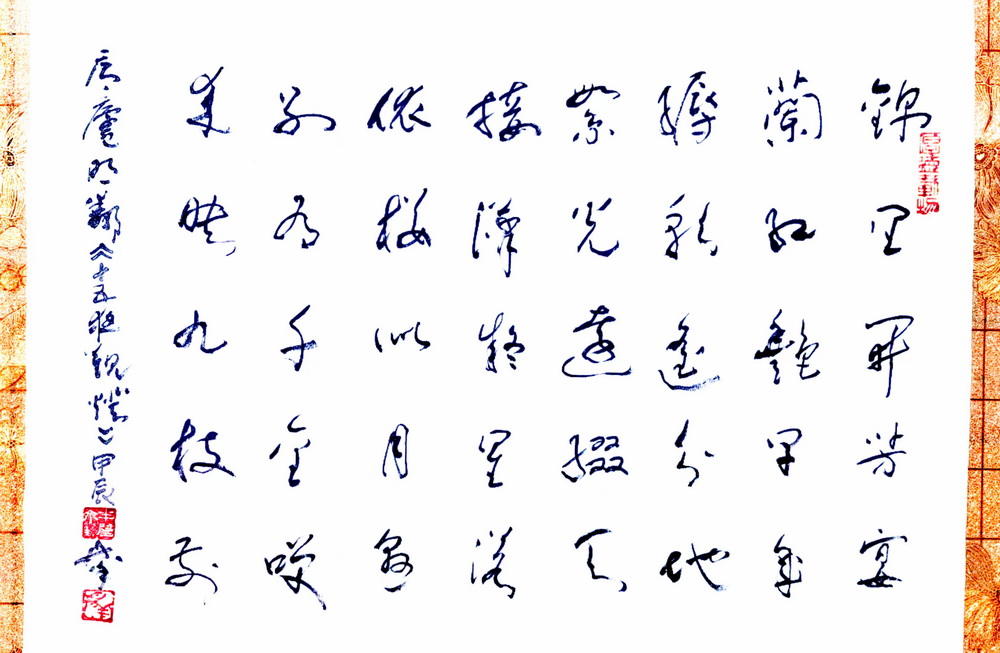 錦里開芳宴
蘭紅艷早年
縟彩遙分地
繁光遠綴天
接漢疑星落
依樓似月懸
別有千金咲
來映九枝前
唐盧照鄰《十五夜觀燈》甲辰